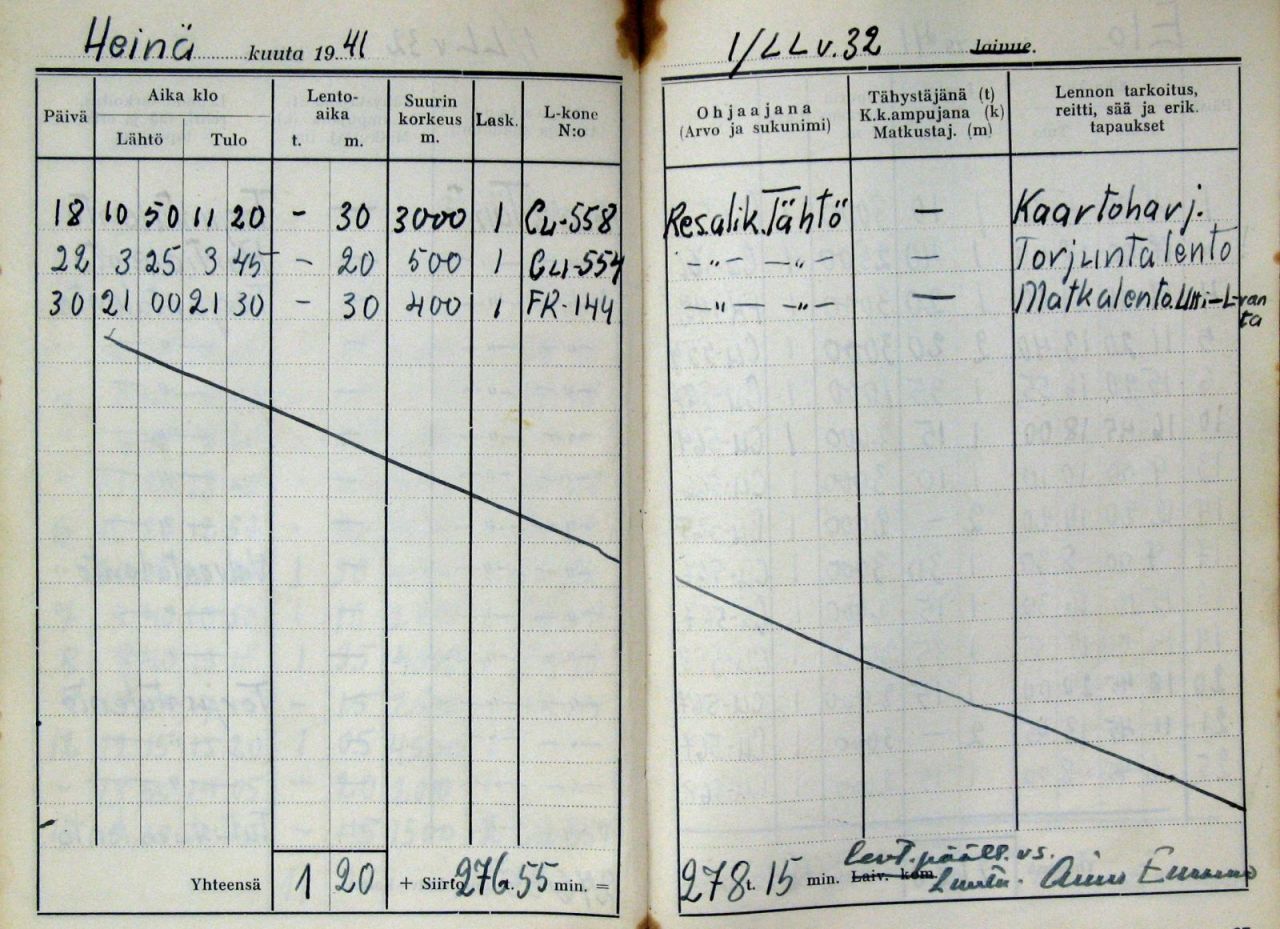 Heinä kuuta 1941
Päivä Aika klo Lähtö Tulo Lento-aika t. m. Suurin korkeus m. Lask. L-kone N:o
18 10 50 11 20 - 30 3000 1 Cu-558
22 3 25 3 45 - 20 500 1 Cu-554
30 21 00 21 30 - 30 400 1 FR-144
Yhteensä 1 20 + Siirto 276 t. 55 min. =
1/LLv.32 laivue.
Ohjaajana (Arvo ja sukunimi) Tähystäjänä (t) K.k.ampujana (k) Matkustaj. (m) Lennon tarkoitus, reitti, sää ja erik. tapaukset
Res.alik. Tähtö — Kaartoharj.
-"- -"- — Torjuntalento
-"- -"- — Matkalento Utti-L-ranta
278 t. 15 min. Laiv. kom.